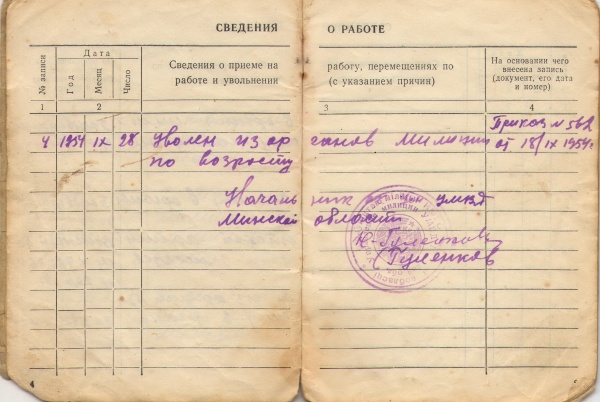 СВЕДЕНИЯ О РАБОТЕ
№ записи
Дата
Год
Месяц
Число
Сведения о приеме на работу, перемещениях по
работе и увольнении (с указанием причин)
На основании чего
внесена запись
(документ, его дата
и номер)
1 2 3 4
4 1954 IX 28 Уволен из органов милиции
по возросту
Приказ № 562
от 18/IX 1954г.
Начальник
Минской области
(Гуменков
4